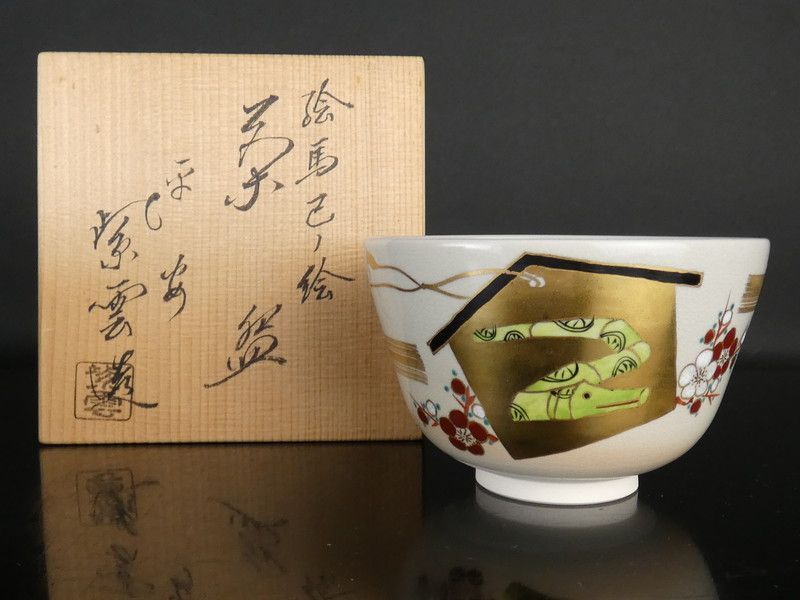 絵馬巳ノ絵
茶盌
平安
紫雲造
紫雲